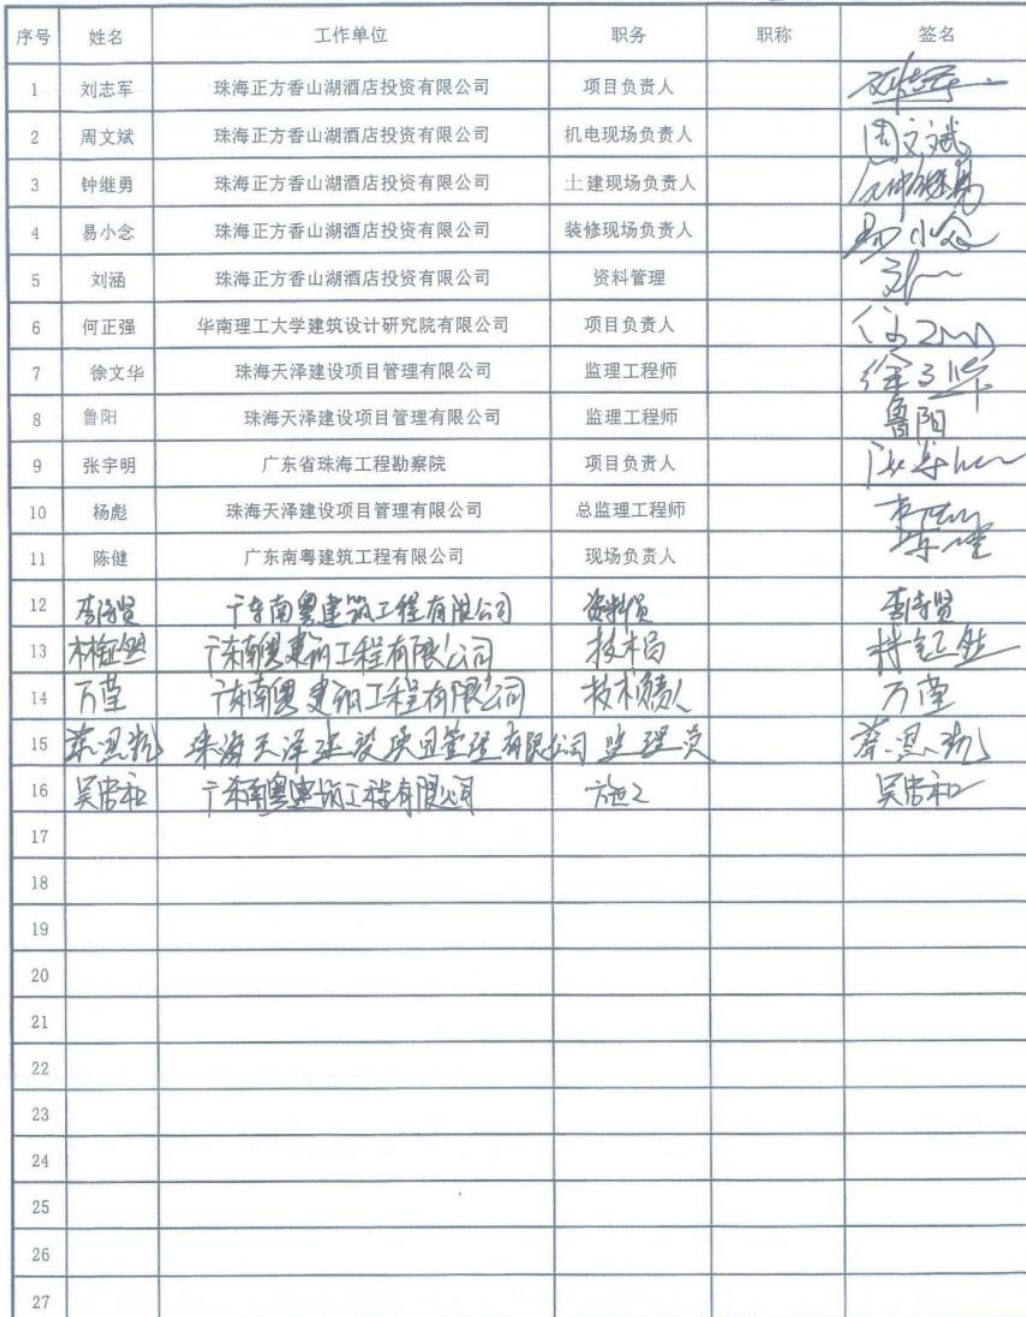 序号 姓名 工作单位 职务 职称 签名
1 刘志军 珠海正方香山湖酒店投资有限公司 项目负责人
2 周文斌 珠海正方香山湖酒店投资有限公司 机电现场负责人 周文斌
3 钟继勇 珠海正方香山湖酒店投资有限公司 土建现场负责人
4 易小念 珠海正方香山湖酒店投资有限公司 装修现场负责人 易小念
5 刘涵 珠海正方香山湖酒店投资有限公司 资料管理
6 何正强 华南理工大学建筑设计研究院有限公司 项目负责人
7 徐文华 珠海天泽建设项目管理有限公司 监理工程师 徐文华
8 鲁阳 珠海天泽建设项目管理有限公司 监理工程师 鲁阳
9 张宇明 广东省珠海工程勘察院 项目负责人
10 杨彪 珠海天泽建设项目管理有限公司 总监理工程师
11 陈健 广东南粤建筑工程有限公司 现场负责人 陈健
12 广东南粤建筑工程有限公司 资料员
13 广东南粤建筑工程有限公司
14 万莹 广东南粤建筑工程有限公司 技术负责人 万莹
15 珠海天泽建设项目管理有限公司 监理员
16 广东南粤建筑工程有限公司 施工
17
18
19
20
21
22
23
24
25
26
27